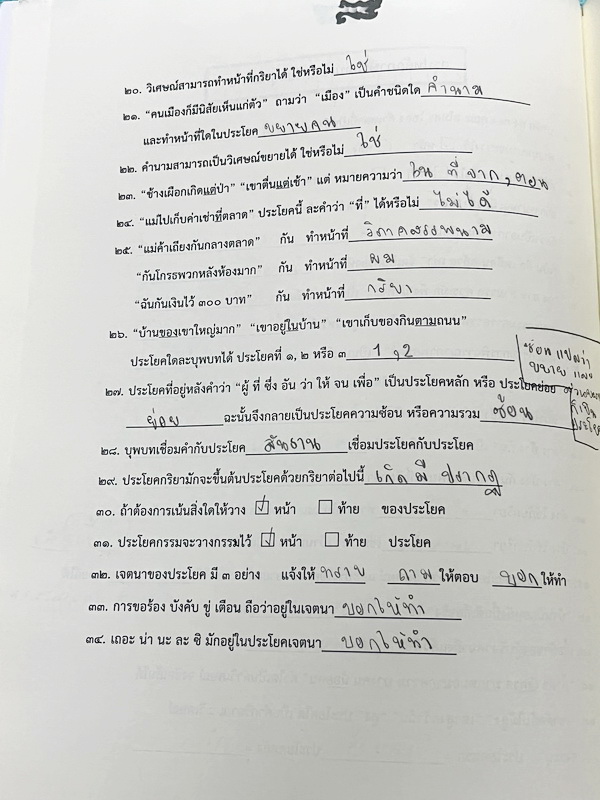 ๒๐. วิเศษณ์สามารถทำหน้าที่กริยาได้ ใช่หรือไม่ ใช่
๒๑. "คนเมืองก็มีนิสัยเห็นแก่ตัว" ถามว่า "เมือง" เป็นคำชนิดใด คำนาม
และทำหน้าที่ใดในประโยค ขยายคน
๒๒. คำนามสามารถเป็นวิเศษณ์ขยายได้ ใช่หรือไม่ ใช่
๒๓. "ช้างเผือกเกิดแต่ป่า" "เขาตื่นแต่เช้า" แต่ หมายความว่า ใน ที่ จาก , ตอน
๒๔. "แม่ไปเก็บค่าเช่าที่ตลาด" ประโยคนี้ ละคำว่า "ที่" ได้หรือไม่ ไม่ได้
๒๕. "แม่ค้าเถียงกันกลางตลาด" กัน ทำหน้าที่ วิภาคสรรพนาม
"กันโกรธพวกหลังห้องมาก" กัน ทำหน้าที่ ผม
"ฉันกันเงินไว้ ๓๐๐ บาท" กัน ทำหน้าที่ กริยา
๒๖. "บ้านของเขาใหญ่มาก" "เขาอยู่ในบ้าน" "เขาเก็บของกินตามถนน"
ประโยคใดละบุพบทได้ ประโยคที่ ๑, ๒ หรือ ๓ 1 , 2
ซ้อน แปลว่า
ขยาย และ
๒๗. ประโยคที่อยู่หลังคำว่า "ผู้ ที่ ซึ่ง อัน ว่า ให้ จน เพื่อ" เป็นประโยคหลัก หรือ ประโยคย่อย
ย่อย ฉะนั้นจึงกลายเป็นประโยคความซ้อน หรือความรวม ซ้อน
ประโยค
๒๘. บุพบทเชื่อมคำกับประโยค สันธาน เชื่อมประโยคกับประโยค
๒๙. ประโยคกริยามักจะขึ้นต้นประโยคด้วยกริยาต่อไปนี้ เกิด มี ปรากฏ
๓๐. ถ้าต้องการเน้นสิ่งใดให้วาง ☑ หน้า ☐ ท้าย ของประโยค
๓๑. ประโยคกรรมจะวางกรรมไว้ ☑ หน้า ☐ ท้าย ประโยค
๓๒. เจตนาของประโยค มี ๓ อย่าง แจ้งให้ ทราบ ถาม ให้ตอบ บอก ให้ทำ
๓๓. การขอร้อง บังคับ ขู่ เตือน ถือว่าอยู่ในเจตนา บอกให้ทำ
๓๔. เถอะ น่า นะ ละ ซิ มักอยู่ในประโยคเจตนา บอกให้ทำ